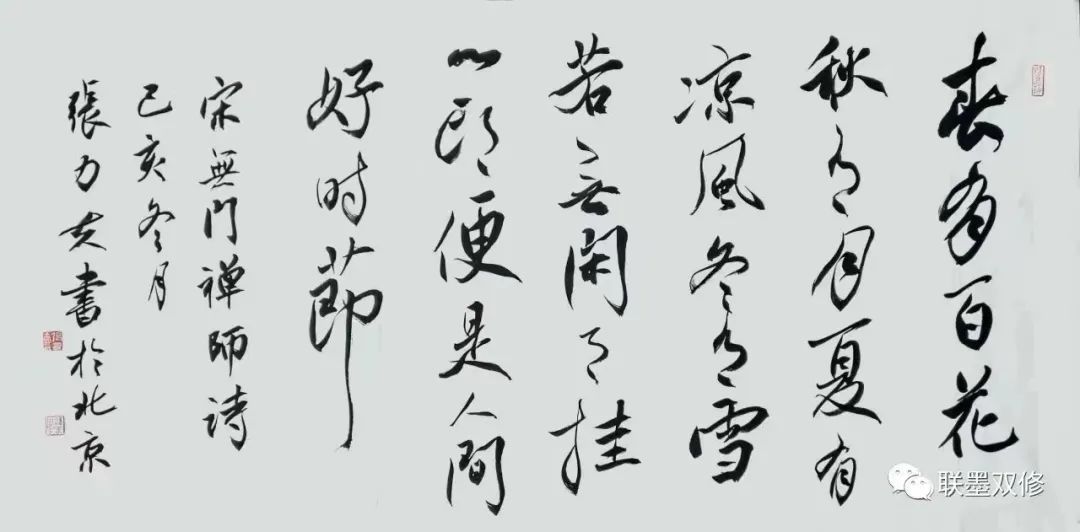 春有百花
秋有月夏有
凉風冬有雪
若無閑事挂
心頭便是人間
好时節
宋無門禅師诗
己亥冬月
張力夫書於北京
联墨双修